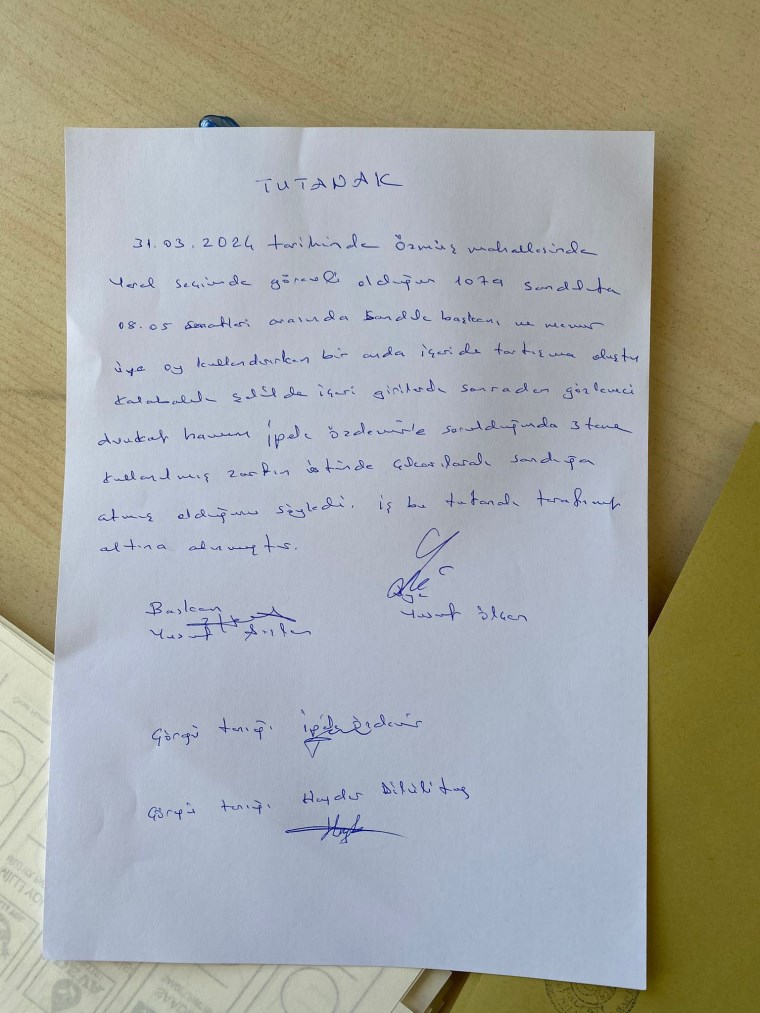 TUTANAK
31.03.2024 tarihinde Özmüş mahallesinde
Yerel seçimde görevli olduğum 1079 sandıkta
08.05 saatleri arasında Sandık başkanı ve memur
üye oy kullandırırken bir anda içeride tartışma oluştu
Kalabalık şekilde içeri girilerek sonradan gözlemci
avukat hanım İpek Özdemir'e sorulduğunda 3 tane
kullanılmış zarfın üstünde çıkarılarak sandığa
atmış olduğunu söyledi. iş bu tutanak tarafımız
altına alınmıştır.
Başkan
Yusuf
Üye
Yusuf
Görgü tanığı İpek Özdemir
Görgü tanığı Haydar Dikilitaş